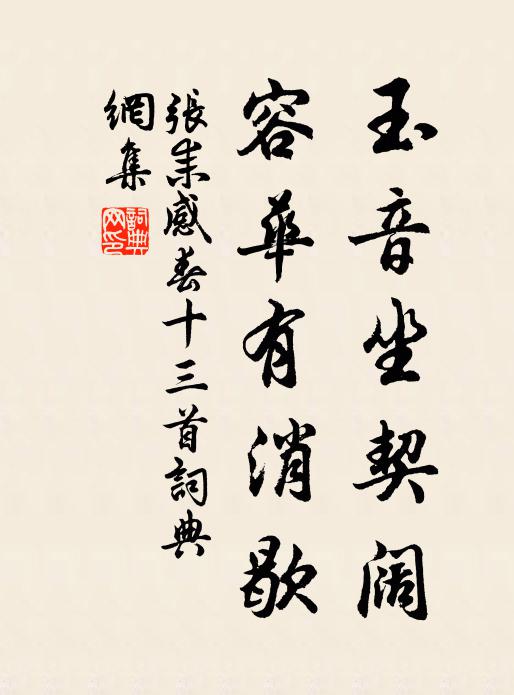 玉音坐契阔
容華有消歇
張耒感春十三首詞典
網集
詞典網印